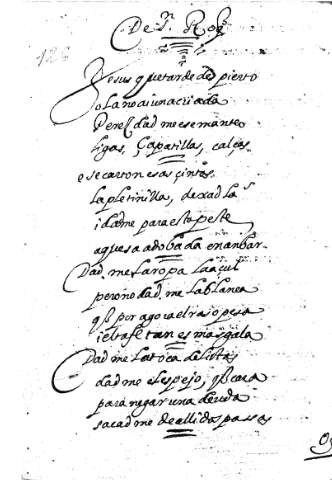 De Jn Roz
126
Jesus q tarde despierto
ola no ai una criada
Perez dad me ese manteo
ligas, Çapatillas, calças
ese carton esas çintas
la pletinilla, dexad las
i dad me para esta peste
aquesa adobada en anbar
Dad me la ropa la açul
pero no dad me la blanca
q por agora el raso pesa
i el tafetan es mas gala
Dad me la toca de listas
dad me el espejo, q cara
para negar una deuda
sacad me de alli dos pasas